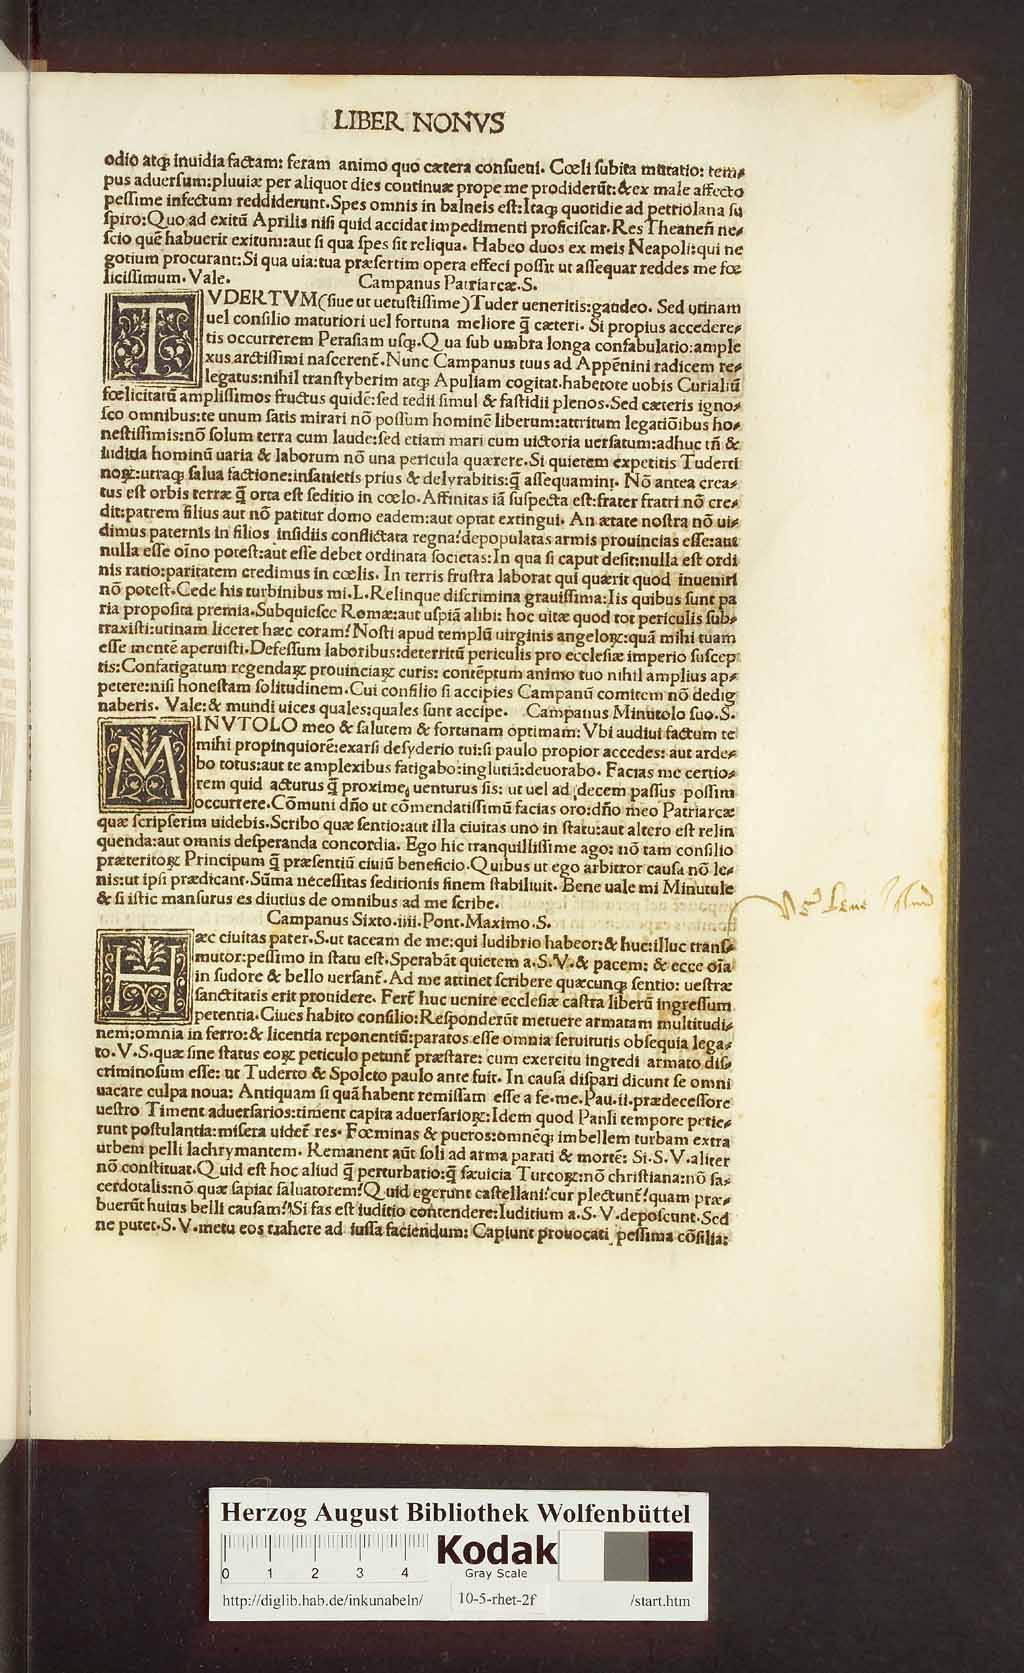 LIBER NONVS
odio atq; inuidia factam: feram animo quo cætera consueui. Cœli subita mutatio: tem-
pus aduersum: pluuiæ per aliquot dies continuæ prope me prodiderūt: & ex male affecto
pessime infectum reddiderunt. Spes omnis in balneis est: Itaq; quotidie ad petriolana su
spiro: Quo ad exitū Aprilis nisi quid accidat impedimenti proficiscar. Res Theaneñ ne-
scio quē habuerit exitum: aut si qua spes sit reliqua. Habeo duos ex meis Neapoli: qui ne
gotium procurant: Si qua uia: tua præsertim opera effeci possit ut assequar reddes me fœ
licissimum. Vale. Campanus Patriarcæ. S.
TVDERTVM (siue ut uetustissime) Tuder ueneritis: gaudeo. Sed utinam
uel consilio maturiori uel fortuna meliore q̄ cæteri. Si propius accedere-
tis occurrerem Perasiam usq;. Qua sub umbra longa confabulatio: ample
xus arctissimi nascerent̄. Nunc Campanus tuus ad Appēnini radicem re-
legatus: nihil transtyberim atq; Apuliam cogitat. habetote uobis Curialiū
fœlicitatū amplissimos fructus quidē: sed tedii simul & fastidii plenos. Sed cæteris igno-
sco omnibus: te unum satis mirari nō possum hominē liberum: attritum legatiōibus ho-
nestissimis: nō solum terra cum laude: sed etiam mari cum uictoria uersatum: adhuc tñ &
iuditia hominū uaria & laborum nō una pericula quærere. Si quietem expetitis Tuderti
noꝝ: utraq; salua factione: insanietis prius & delyrabitis: q̄ assequamini. Nō antea crea-
tus est orbis terræ q̄ orta est seditio in cœlo. Affinitas iā suspecta est: frater fratri nō cre-
dit: patrem filius aut nō patitur domo eadem: aut optat extingui. An ætate nostra nō ui-
dimus paternis in filios insidiis conflictata regna? depopulatas armis prouincias esse: aut
nulla esse oīno potest: aut esse debet ordinata societas: In qua si caput desit: nulla est ordi
nis ratio: paritatem credimus in cœlis. In terris frustra laborat qui quærit quod inueniri
nō potest. Cede his turbinibus mi. L. Relinque discrimina grauissima: Iis quibus sunt pa
ria proposita premia. Subquiesce Romæ: aut uspiā alibi: hoc uitæ quod tot periculis sub-
traxisti: utinam liceret hæc coram? Nosti apud templū uirginis angeloꝝ: quā mihi tuam
esse mentē aperuisti. Defessum laboribus: deterritū periculis pro ecclesiæ imperio suscep
tis: Confatigatum regendaꝝ prouinciaꝝ curis: contēptum animo tuo nihil amplius ap-
petere: nisi honestam solitudinem. Cui consilio si accipies Campanū comitem nō dedig
naberis. Vale: & mundi uices quales: quales sunt accipe. Campanus Minutolo suo. S.
MINVTOLO meo & salutem & fortunam optimam: Vbi audiui factum te
mihi propinquiorē: exarsi desyderio tui: si paulo propior accedes: aut arde-
bo totus: aut te amplexibus fatigabo: inglutiā: deuorabo. Facias me certio-
rem quid acturus q̄ proxime uenturus sis: ut uel ad decem passus possim
occurrere. Cōmuni dño ut cōmendatissimū facias oro: dño meo Patriarcæ
quæ scripserim uidebis. Scribo quæ sentio: aut illa ciuitas uno in statu: aut altero est relin
quenda: aut omnis desperanda concordia. Ego hic tranquillissime ago: nō tam consilio
præteritoꝝ Principum q̄ præsentiū ciuiū beneficio. Quibus ut ego arbitror causa nō le-
nis: ut ipsi prædicant. Sūma necessitas seditionis finem stabiliuit. Bene uale mi Minutule
& si istic mansurus es diutius de omnibus ad me scribe.
Campanus Sixto. iiii. Pont. Maximo. S.
Hæc ciuitas pater. S. ut taceam de me: qui ludibrio habeor: & huc: illuc trans-
mutor: pessimo in statu est. Sperabāt quietem a. S. V. & pacem: & ecce oīa
in sudore & bello uersant̄. Ad me attinet scribere quæcunq; sentio: uestræ
sanctitatis erit prouidere. Fert̄ huc uenire ecclesiæ castra liberū ingressum
petentia. Ciues habito consilio: Responderūt metuere armatam multitudi-
nem: omnia in ferro: & licentia reponentiū: paratos esse omnia seruitutis obsequia lega-
to. V. S. quæ sine status eoꝝ periculo petunt̄ præstare: cum exercitu ingredi armato dis-
criminosum esse: ut Tuderto & Spoleto paulo ante fuit. In causa dispari dicunt se omni
uacare culpa noua: Antiquam si quā habent remissam esse a fe. me. Pau. ii. prædecessore
uestro Timent aduersarios: timent capita aduersarioꝝ: Idem quod Pauli tempore petie-
runt postulantia: misera uidet̄ res. Fœminas & pueros: omnēq; imbellem turbam extra
urbem pelli lachrymantem. Remanent aūt soli ad arma parati & mortē: Si. S. V. aliter
nō constituat. Quid est hoc aliud q̄ perturbatio: q̄ sæuicia Turcoꝝ: nō christiana: nō sa-
cerdotalis: nō quæ sapiat saluatorem? Quid egerunt castellani? cur plectunt̄? quam præ-
buerūt huius belli causam? Si fas est iuditio contendere: Iuditium a. S. V. deposcunt. Sed
ne putet. S. V. metu eos trahere ad iussa faciendum: Capiunt prouocati pessima cōsilia:
Herzog August Bibliothek Wolfenbüttel
0 1 2 3 4
Kodak
Gray Scale
http://diglib.hab.de/inkunabeln/ 10-5-rhet-2f /start.htm